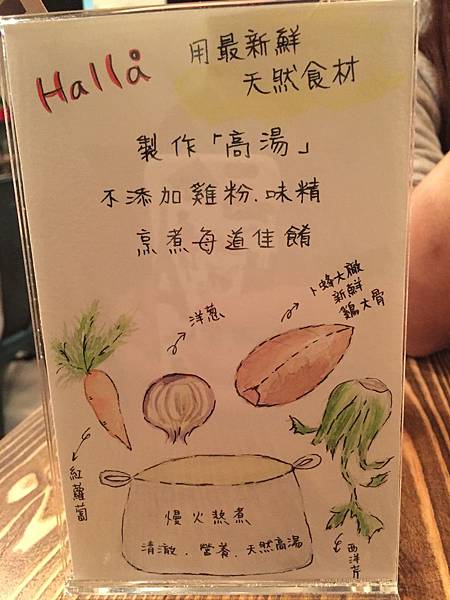 Hallå
用最新鮮
天然食材
製作「高湯」
不添加雞粉.味精
烹煮每道佳餚
洋蔥
卜蜂大廠
新鮮
雞大骨
紅蘿蔔
慢火熬煮
清澈.營養.天然高湯
西洋芹